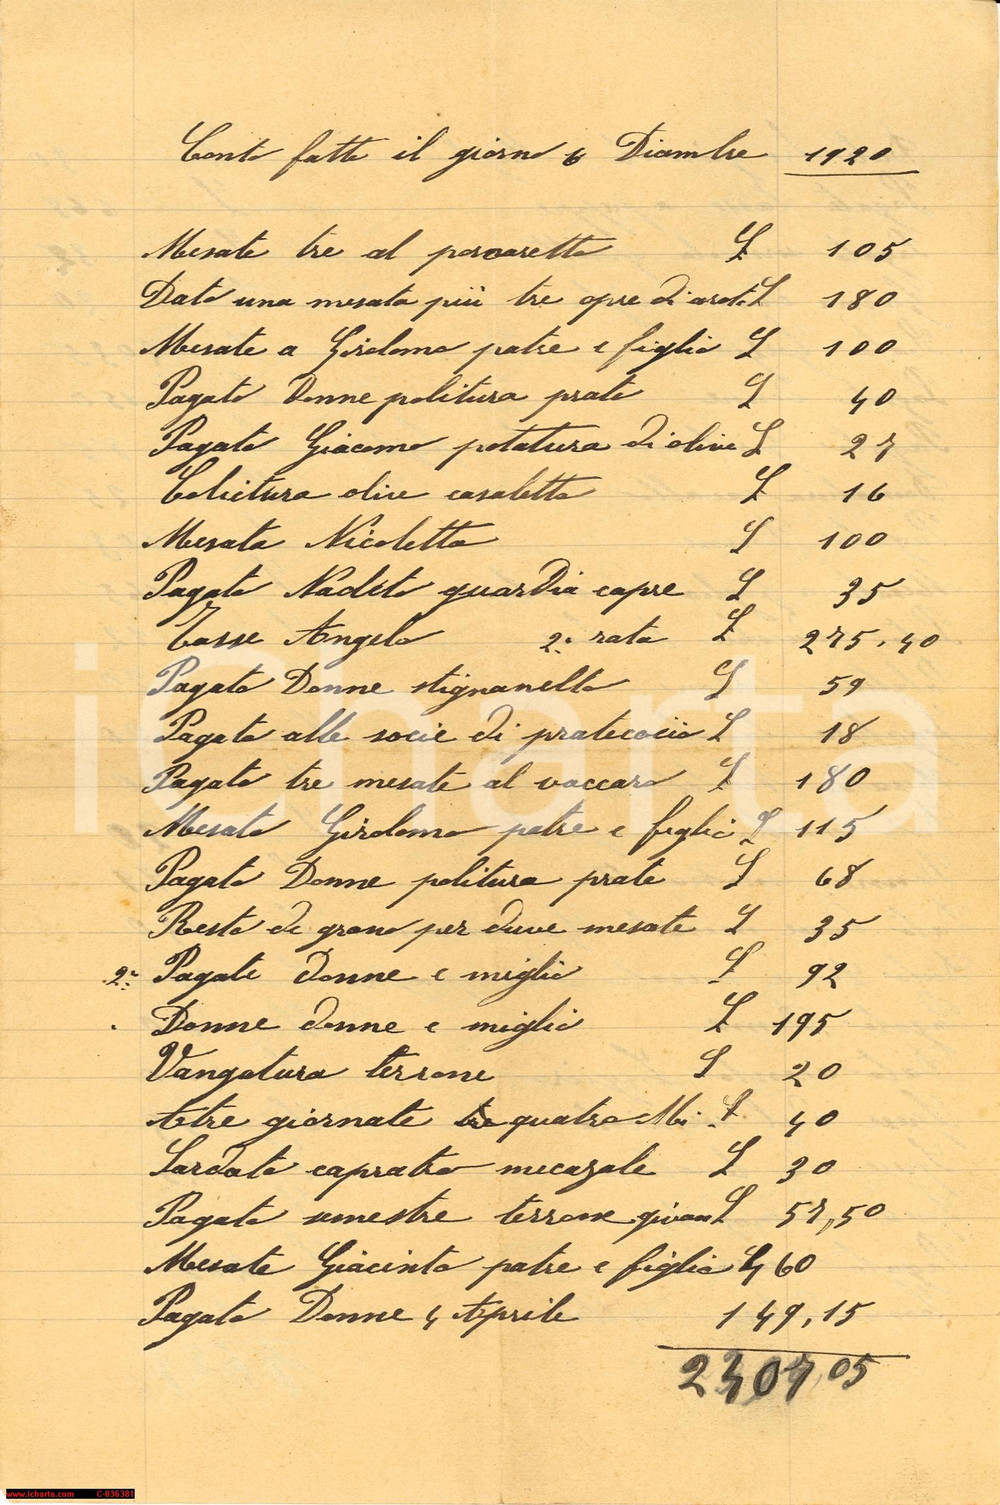 Conto fatto il giorno 6 Dicembre 1920
Mesate tre al porcaretto £ 105
Dato una mesata più tre opre di arate £ 180
Mesate a Girolomo patre e figlio £ 100
Pagato Donne politura prato £ 40
Pagato Giacomo potatura di olive £ 27
Colietura olive casaletto £ 16
Mesata Nicoletta £ 100
Pagato guardia capre £ 35
Tasse Angelo 2ª rata £ 275.40
Pagato Donne stignanello £ 59
Pagato alle socie di £ 18
Pagato tre mesate al vaccaro £ 180
Mesata Girolomo patre e figlio £ 115
Pagato Donne politura prato £ 68
Resto di grano per duve mesate £ 35
2ª Pagate donne e miglio £ 92
Donne donne e miglio £ 195
Vangatura terrone £ 20
giornate quatro £ 40
capratro £ 30
Pagato semestre terrone £ 57,50
Mesate Giacinto patre e figlio £ 460
Pagato Donne 4 Aprile 149,15
2407,05
icharta
www.icharta.com C-036381